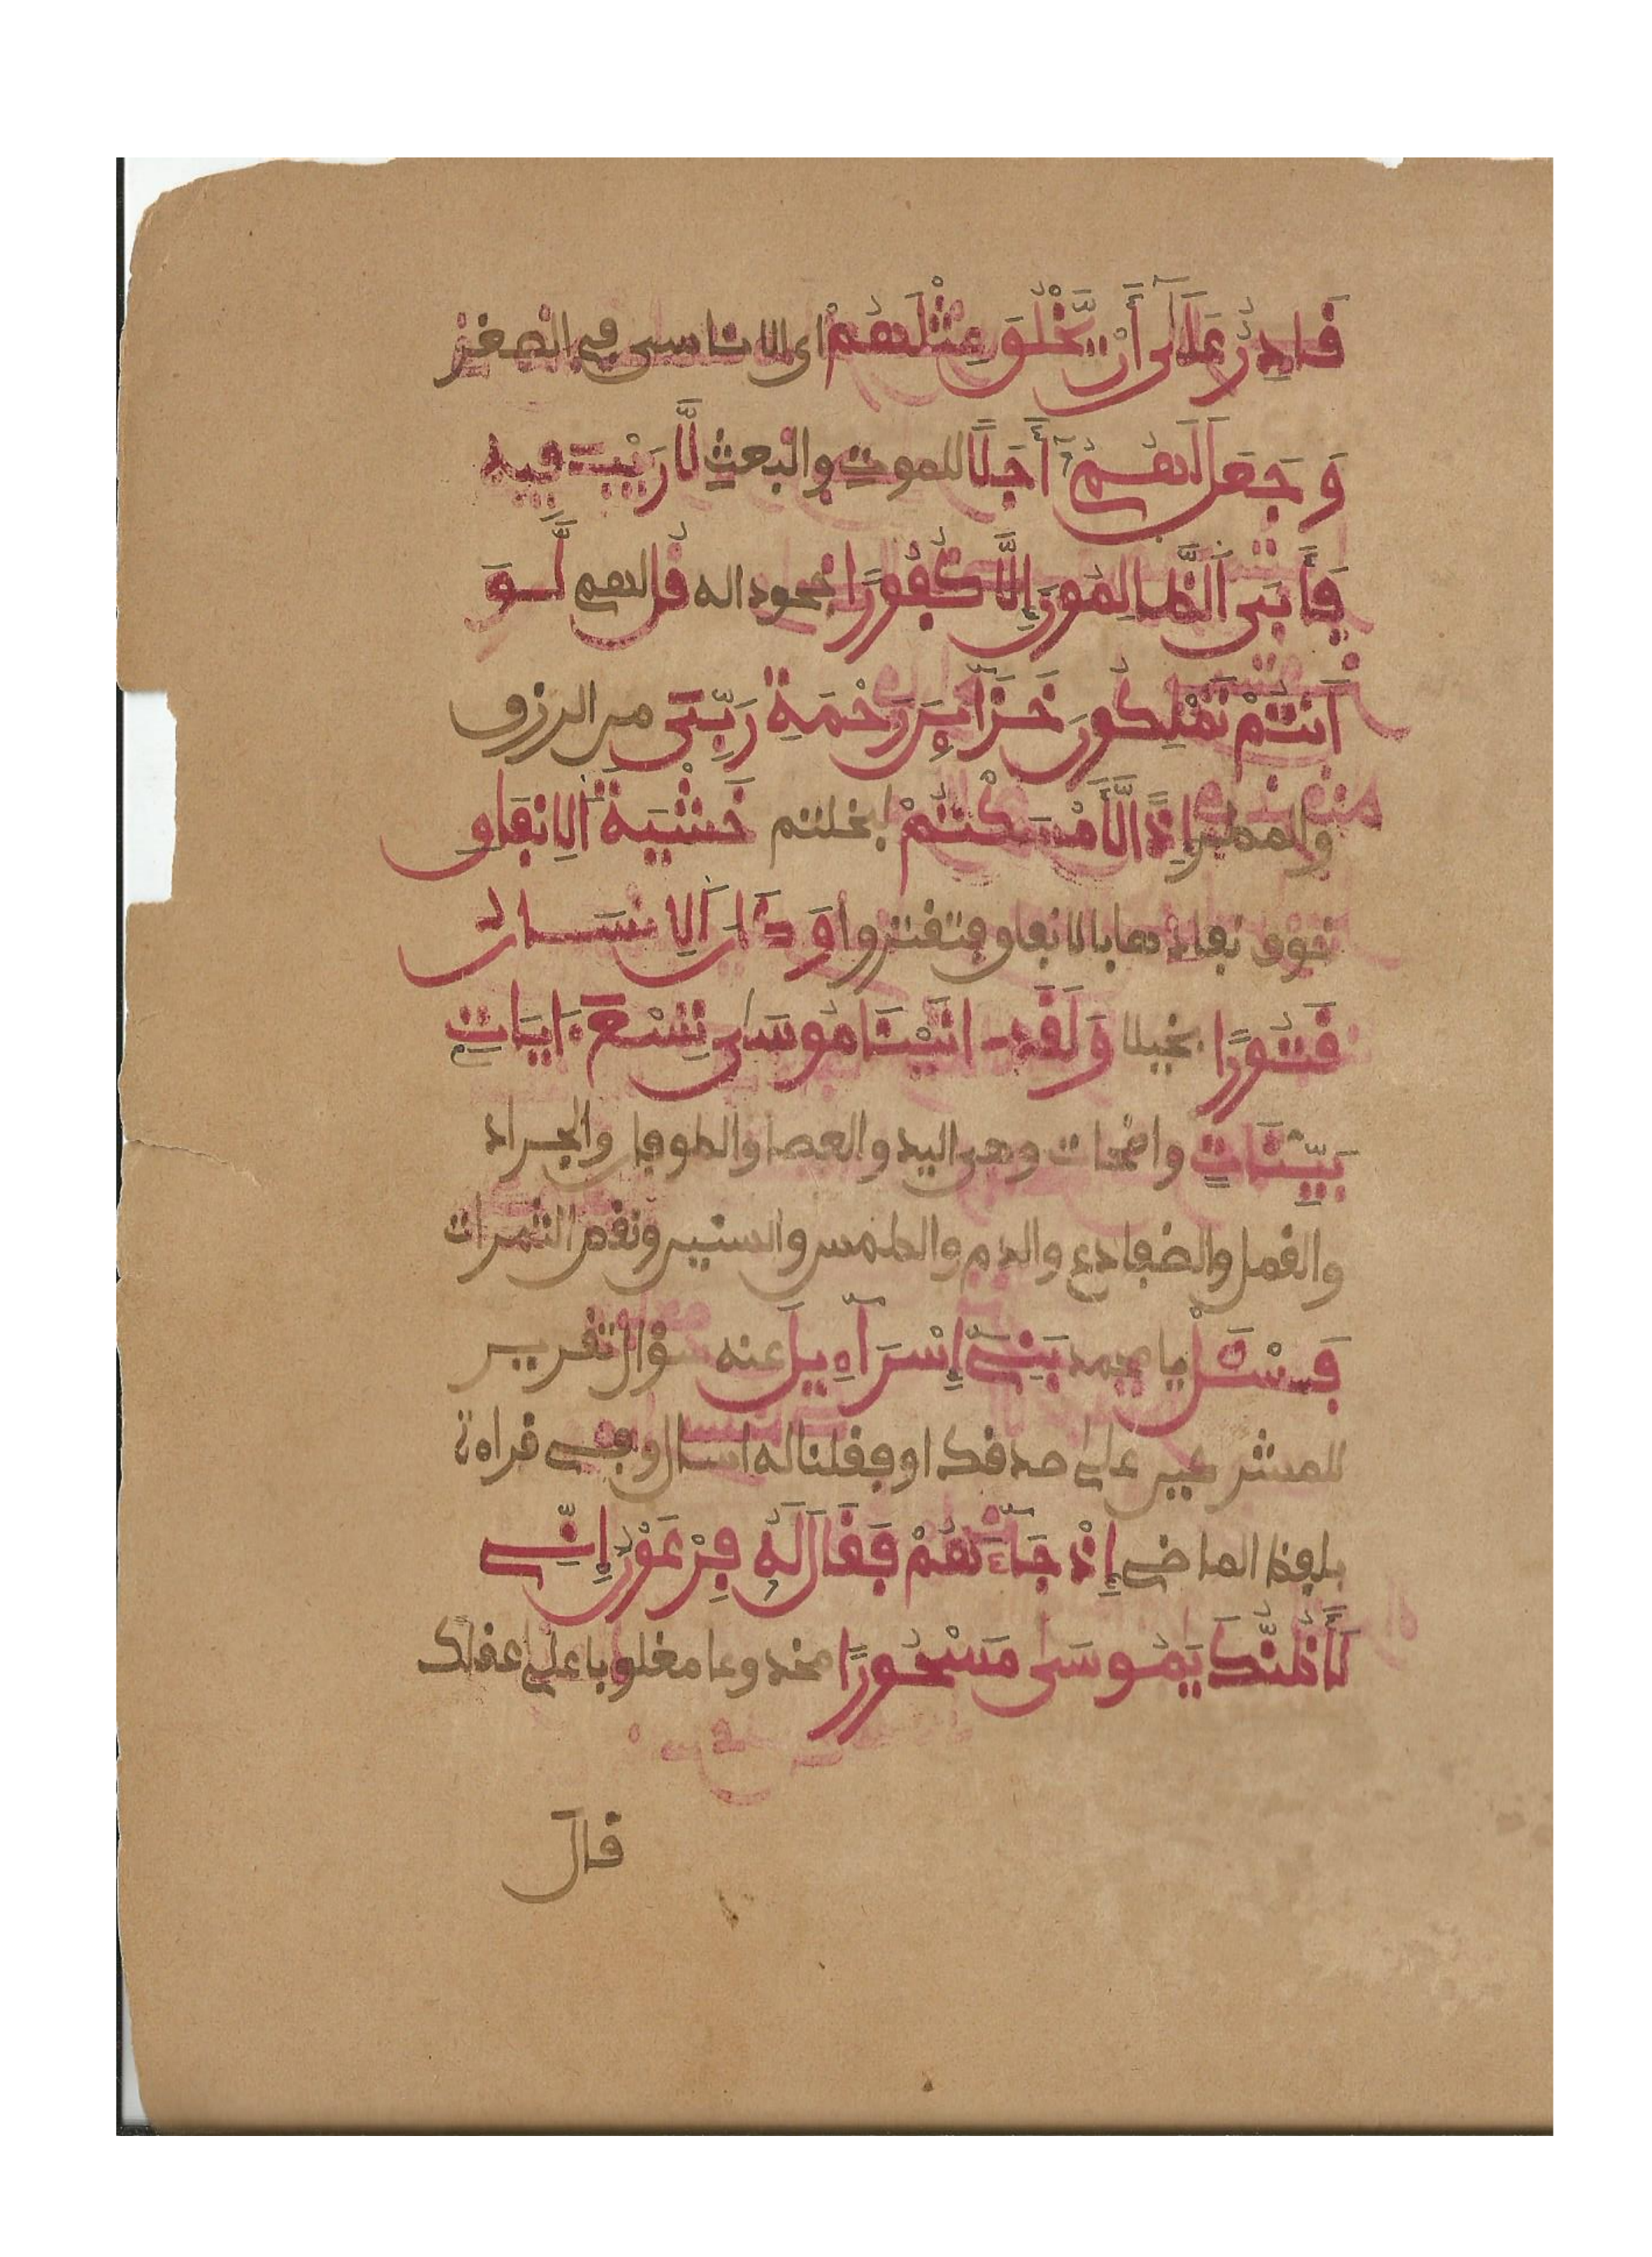 قَادِرٌ عَلَىٰ أَنْ يَّخْلُقَ مِثْلَهُمْ اى الاناسى في الصغر
وَجَعَلَ لَهُمْ أَجَلًا للموت والبعث لَّا رَيْبَ فِيهِ
فَأَبَى الظَّالِمُونَ إِلَّا كُفُورًا جحودا له قُل لهم لَّوْ
أَنتُمْ تَمْلِكُونَ خَزَآئِنَ رَحْمَةِ رَبِّي من الرزق
والمطر إِذًا لَّأَمْسَكْتُمْ لبخلتم خَشْيَةَ الِانفَاقِ
خوف نفادها بالانفاق فتقتروا وَكَانَ الِانسَانُ
قَتُورًا بخيلا وَلَقَدَ اتَيْنَا مُوسَىٰ تِسْعَ ءَايَاتِ
بَيِّنَاتٍ واضحات وهى اليد والعصا والطوفان والجراد
والقمل والضفادع والدم والطمس والسنين ونقص الثمرات
فَسْـَٔلْ يا محمد بَنِي إِسْرَآءِيلَ عنه سؤال تقرير
للمشركين على صدقك او فقلنا له اسال وفي قراءة
بلفظ الماضي إِذْ جَآءَهُمْ فَقَالَ لَهُ فِرْعَوْنُ إِنِّي
لَأَظُنُّكَ يَمُوسَىٰ مَسْحُورًا مخدوعا مغلوبا على عقلك
قال